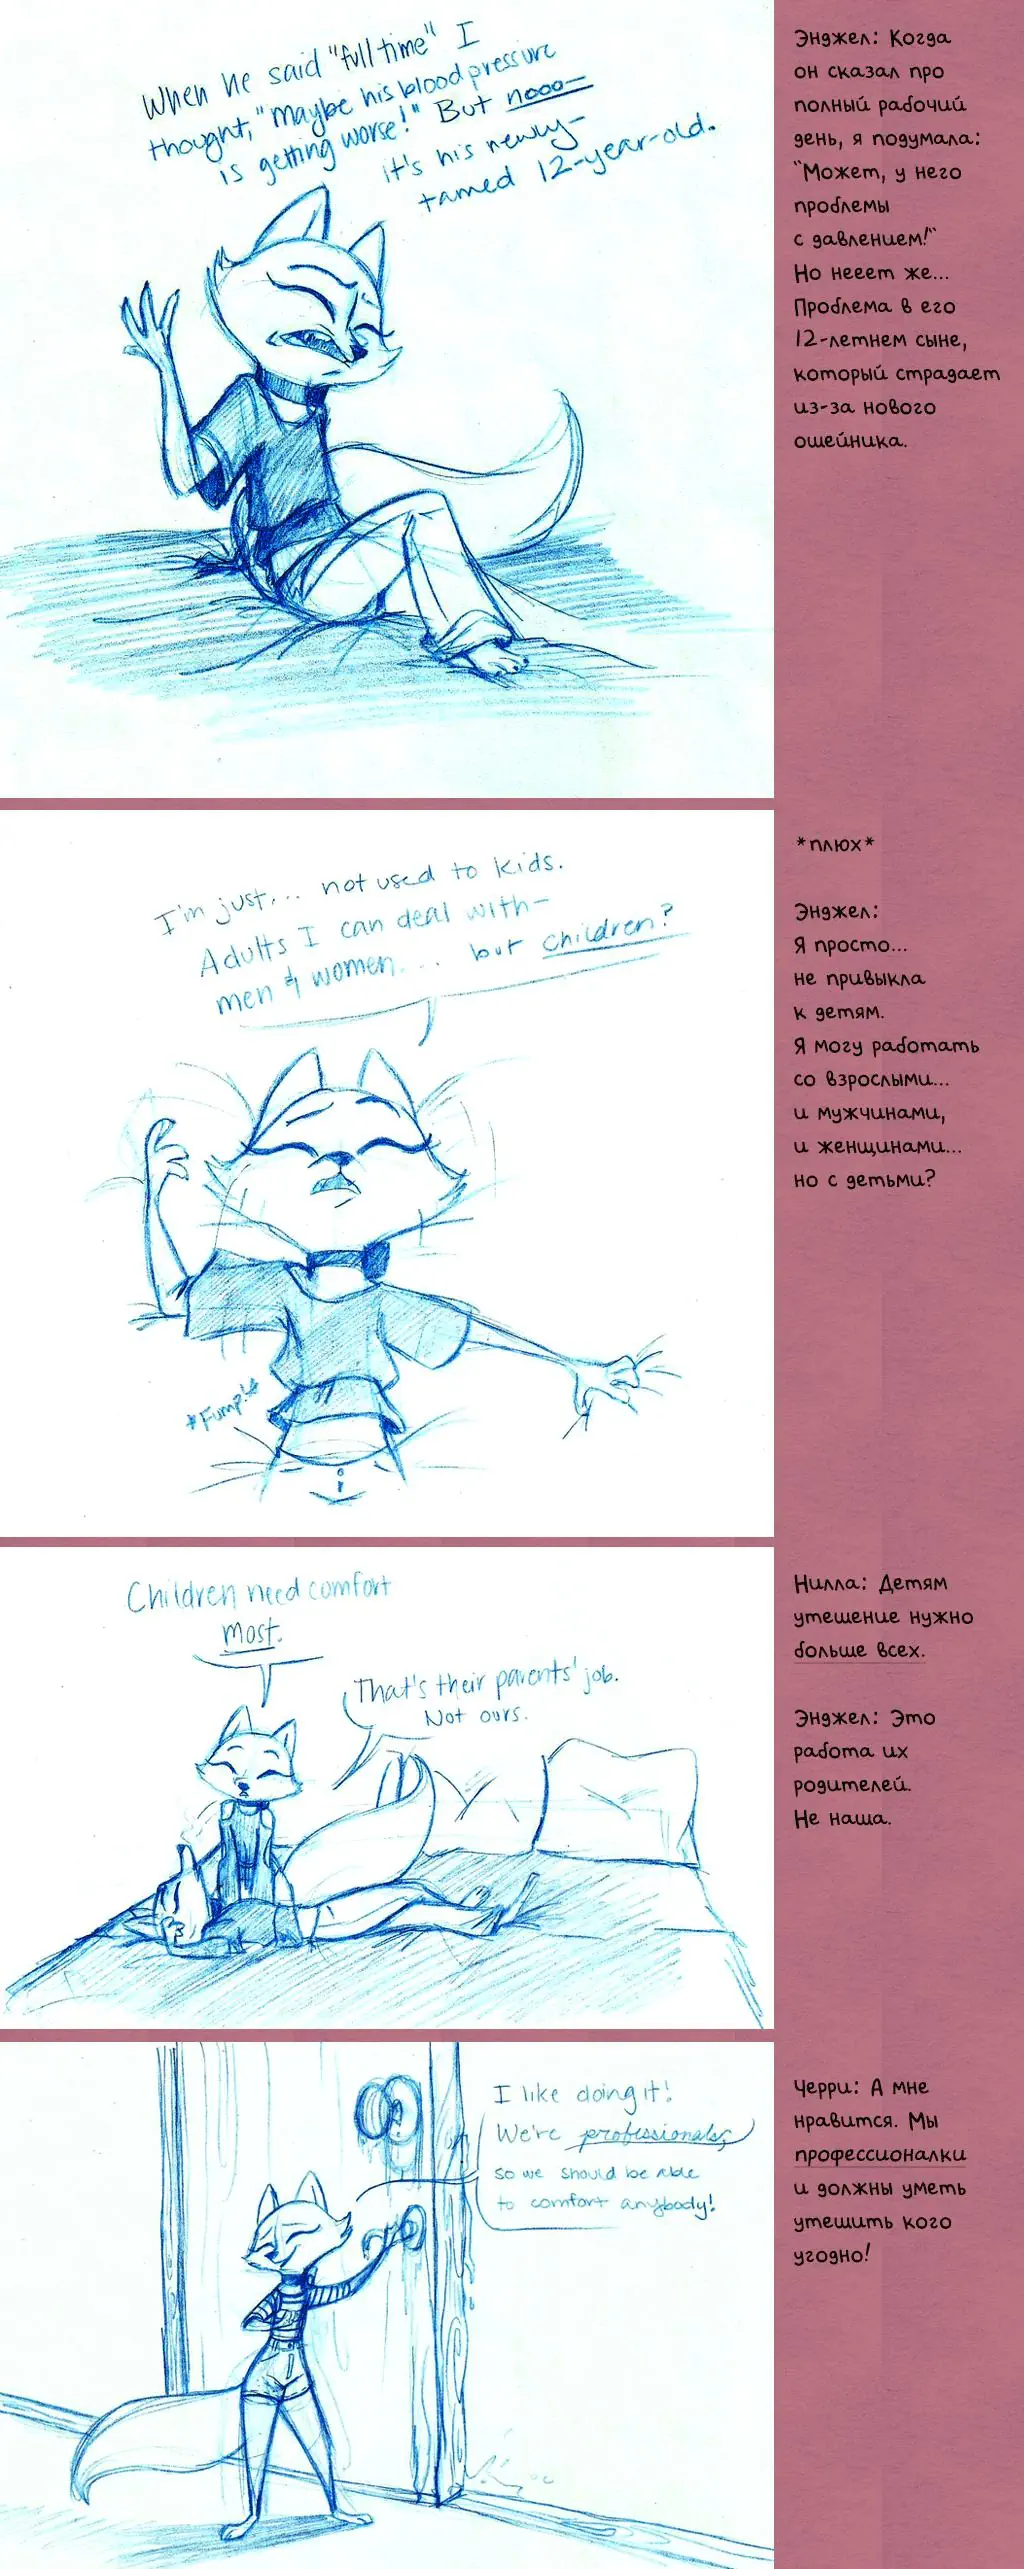 When he said "full time" I
thought, "maybe his blood pressure
is getting worse!" But nooo—
it's his newly-
tamed 12-year-old.
Энджел: Когда
он сказал про
полный рабочий
день, я подумала:
"Может, у него
проблемы
с давлением!"
Но нееет же...
Проблема в его
12-летнем сыне,
который страдает
из-за нового
ошейника.
I'm just... not used to kids.
Adults I can deal with—
men & women.... but children?
*Fump!*
*плюх*
Энджел:
Я просто...
не привыкла
к детям.
Я могу работать
со взрослыми...
и мужчинами,
и женщинами...
но с детьми?
Children need comfort
most.
That's their parents' job.
Not ours.
Нилла: Детям
утешение нужно
больше всех.
Энджел: Это
работа их
родителей.
Не наша.
I like doing it!
We're professionals,
so we should be able
to comfort anybody!
Черри: А мне
нравится. Мы
профессионалки
и должны уметь
утешить кого
угодно!